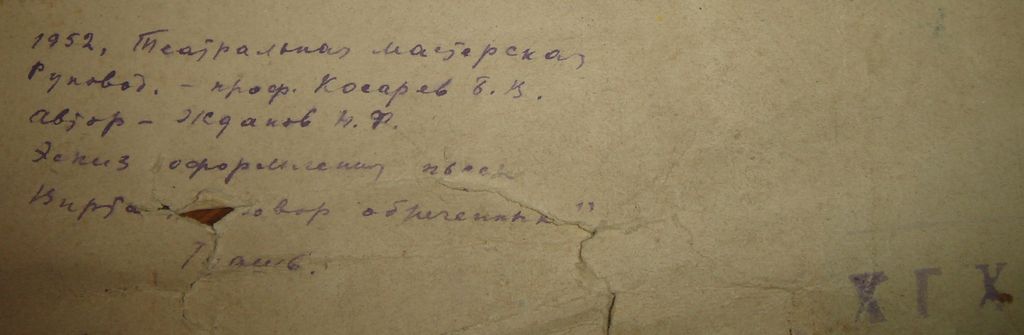 1952, Театральная мастерская
Руковод. – проф. Косарев Б. В.
Автор – Жданов Н. Ф.
Эскиз оформления пьесы
Вирта „ овор обреченных"
ХГХ